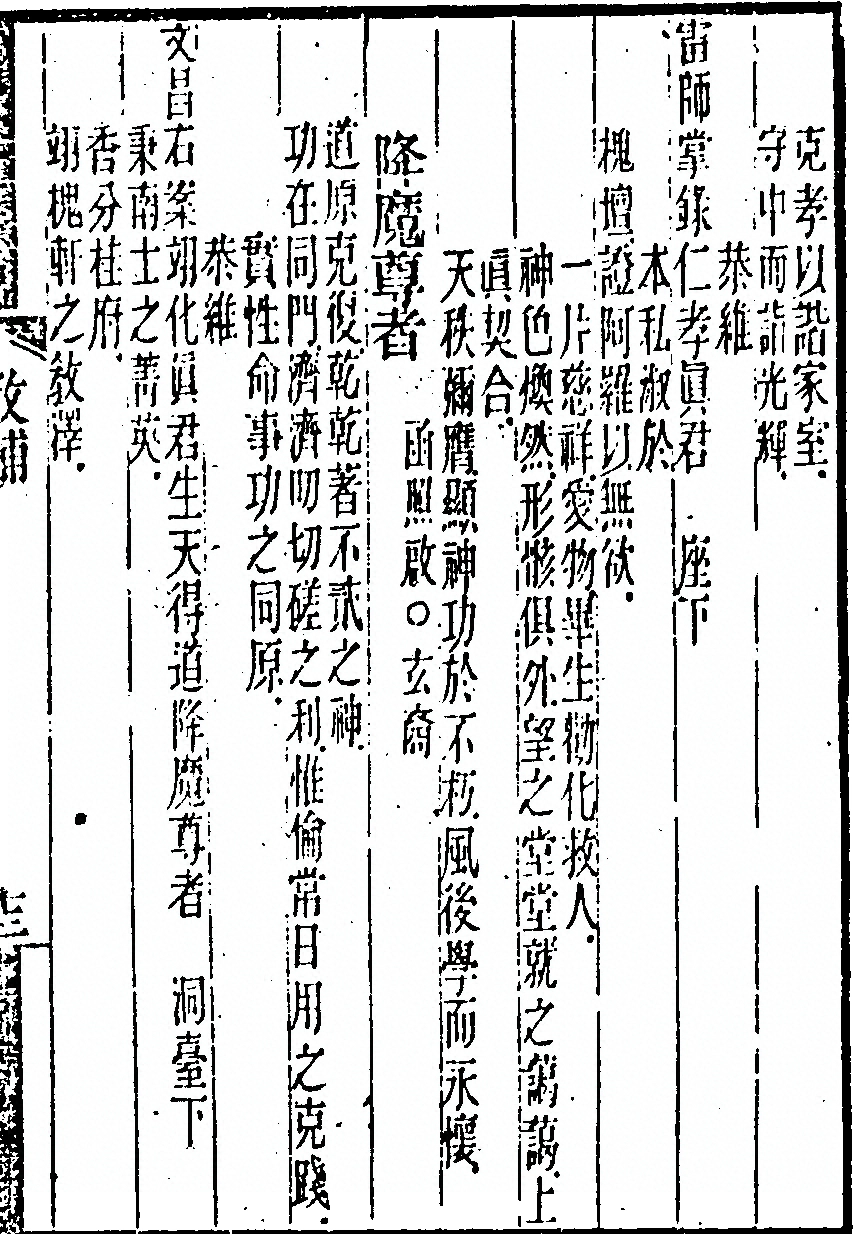 克孝以諧家室
守中而詣光輝
恭維
雷師掌錄仁孝眞君　座下
本私淑於
槐壇證阿羅以無欲
一片慈祥愛物畢生物化救人
神色煥然形骸俱外望之堂堂就之藹藹上
眞契合
天秩彌膺顯神功於不朽風後學而永懷
降魔尊者　函照啟○玄裔
道原克復乾乾著不貳之神
功在同門濟濟叨切磋之利惟倫常日用之克踐
實性命事功之同原
恭維
文昌右案翊化眞君生天得道降魔尊者　洞臺下
秉南士之菁英
香分桂府
翊槐軒之教澤